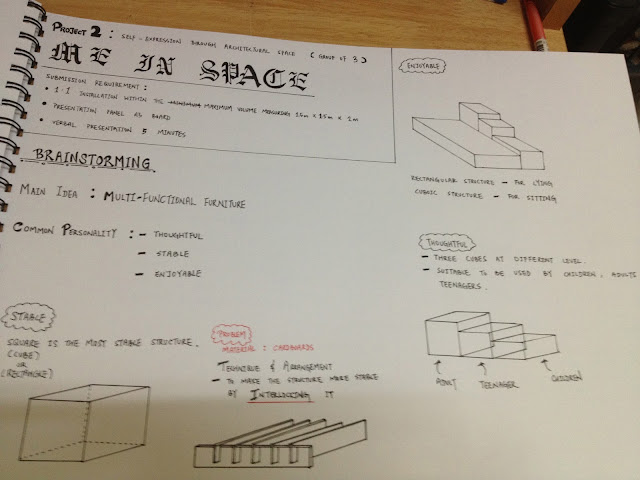 PROJECT 2 : SELF-EXPRESSION THROUGH ARCHITECTURAL SPACE ( GROUP OF 3 )
ME IN SPACE
SUBMISSION REQUIREMENT :
• 1:1 INSTALLATION WITHIN THE MAXIMUM VOLUME MEASURING 1.5m x 1.5m x 2m
• PRESENTATION PANEL A3 BOARD
• VERBAL PRESENTATION 5 MINUTES
BRAINSTORMING
MAIN IDEA : MULTI-FUNCTIONAL FURNITURE
COMMON PERSONALITY : - THOUGHTFUL
- STABLE
- ENJOYABLE
STABLE
SQUARE IS THE MOST STABLE STRUCTURE.
(CUBE)
OR
(RECTANGLE)
PROBLEM
MATERIAL : CARDBOARDS
TECHNIQUE & ARRANGEMENT
- TO MAKE THE STRUCTURE MORE STABLE
BY INTERLOCKING IT
ENJOYABLE
RECTANGULAR STRUCTURE - FOR LYING
CUBIC STRUCTURE - FOR SITTING
THOUGHTFUL
- THREE CUBES AT DIFFERENT LEVEL.
- SUITABLE TO BE USED BY CHILDREN, ADULTS
TEENAGERS.
ADULT TEENAGER CHILDREN